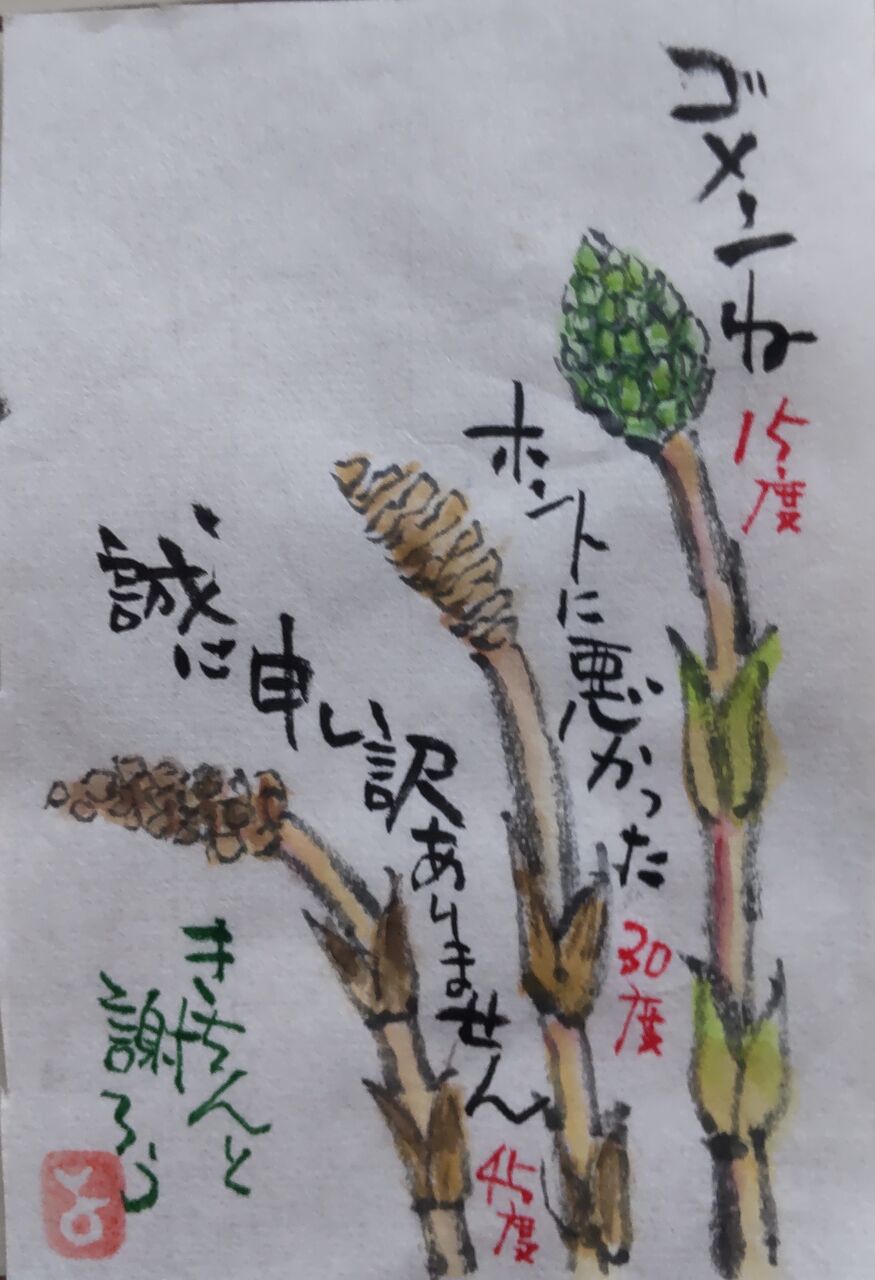 ゴメンね
15度
ホントに悪かった
30度
誠に申し訳ありません
45度
きちんと
謝ろう